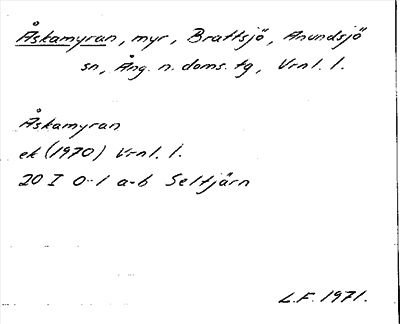 Åskamyran, myr, Brattsjö, Anundsjö
sn, Ång. n. doms. tg, Vrnl. l.
Åskamyran
ek (1970) Vrnl. l.
20 I 0-1 a-b Seltjärn
L.F. 1971.